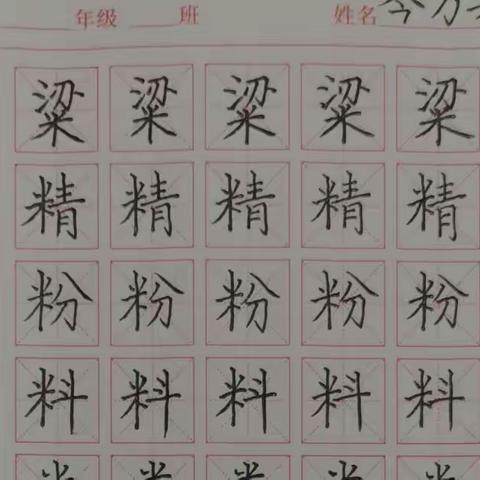 年级 班 姓名
粱 粱 粱 粱 粱
精 精 精 精 精
粉 粉 粉 粉 粉
料 料 料 料 料